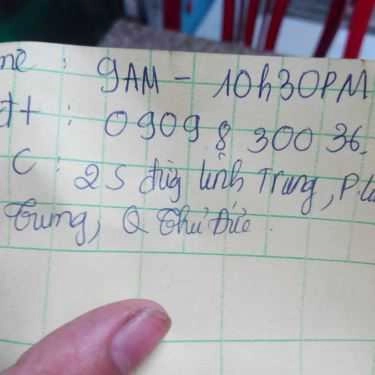 me : 9AM - 10h30PM
đt : 0909 8 300 36.
C : 25 đường Linh Trung, P.
Trung, Q Thủ Đức.